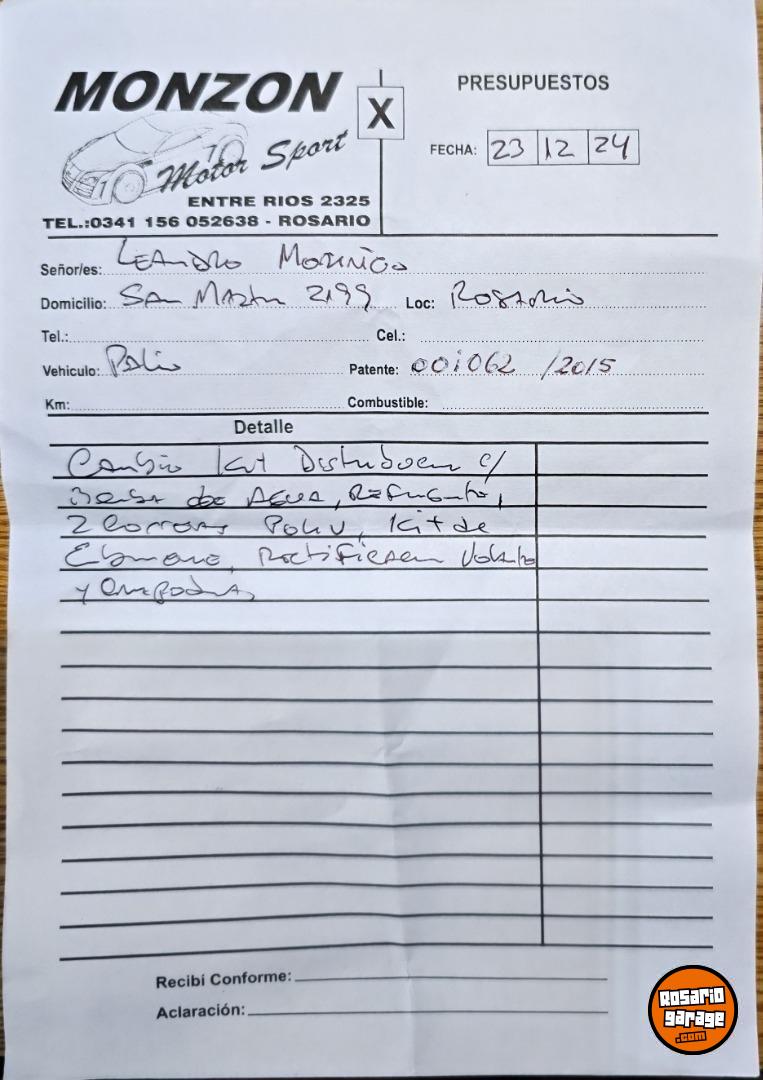 MONZON
Motor Sport
X
PRESUPUESTOS
FECHA: 23 12 24
ENTRE RIOS 2325
TEL.:0341 156 052638 - ROSARIO
Señor/es: LEANDRO
Domicilio: SAN Martin 2199 Loc: Rosario
Tel.: Cel.:
Vehiculo: Palio Patente: 00i062 /2015
Km: Combustible:
Detalle
Cambio Kit Distribucion c/
Bomba de AGUA, Refrigerante,
2 Correas Poliv, Kit de
Embrague, Rectificacion Volante
y
Recibí Conforme:
Aclaración:
Rosario
garage
.com